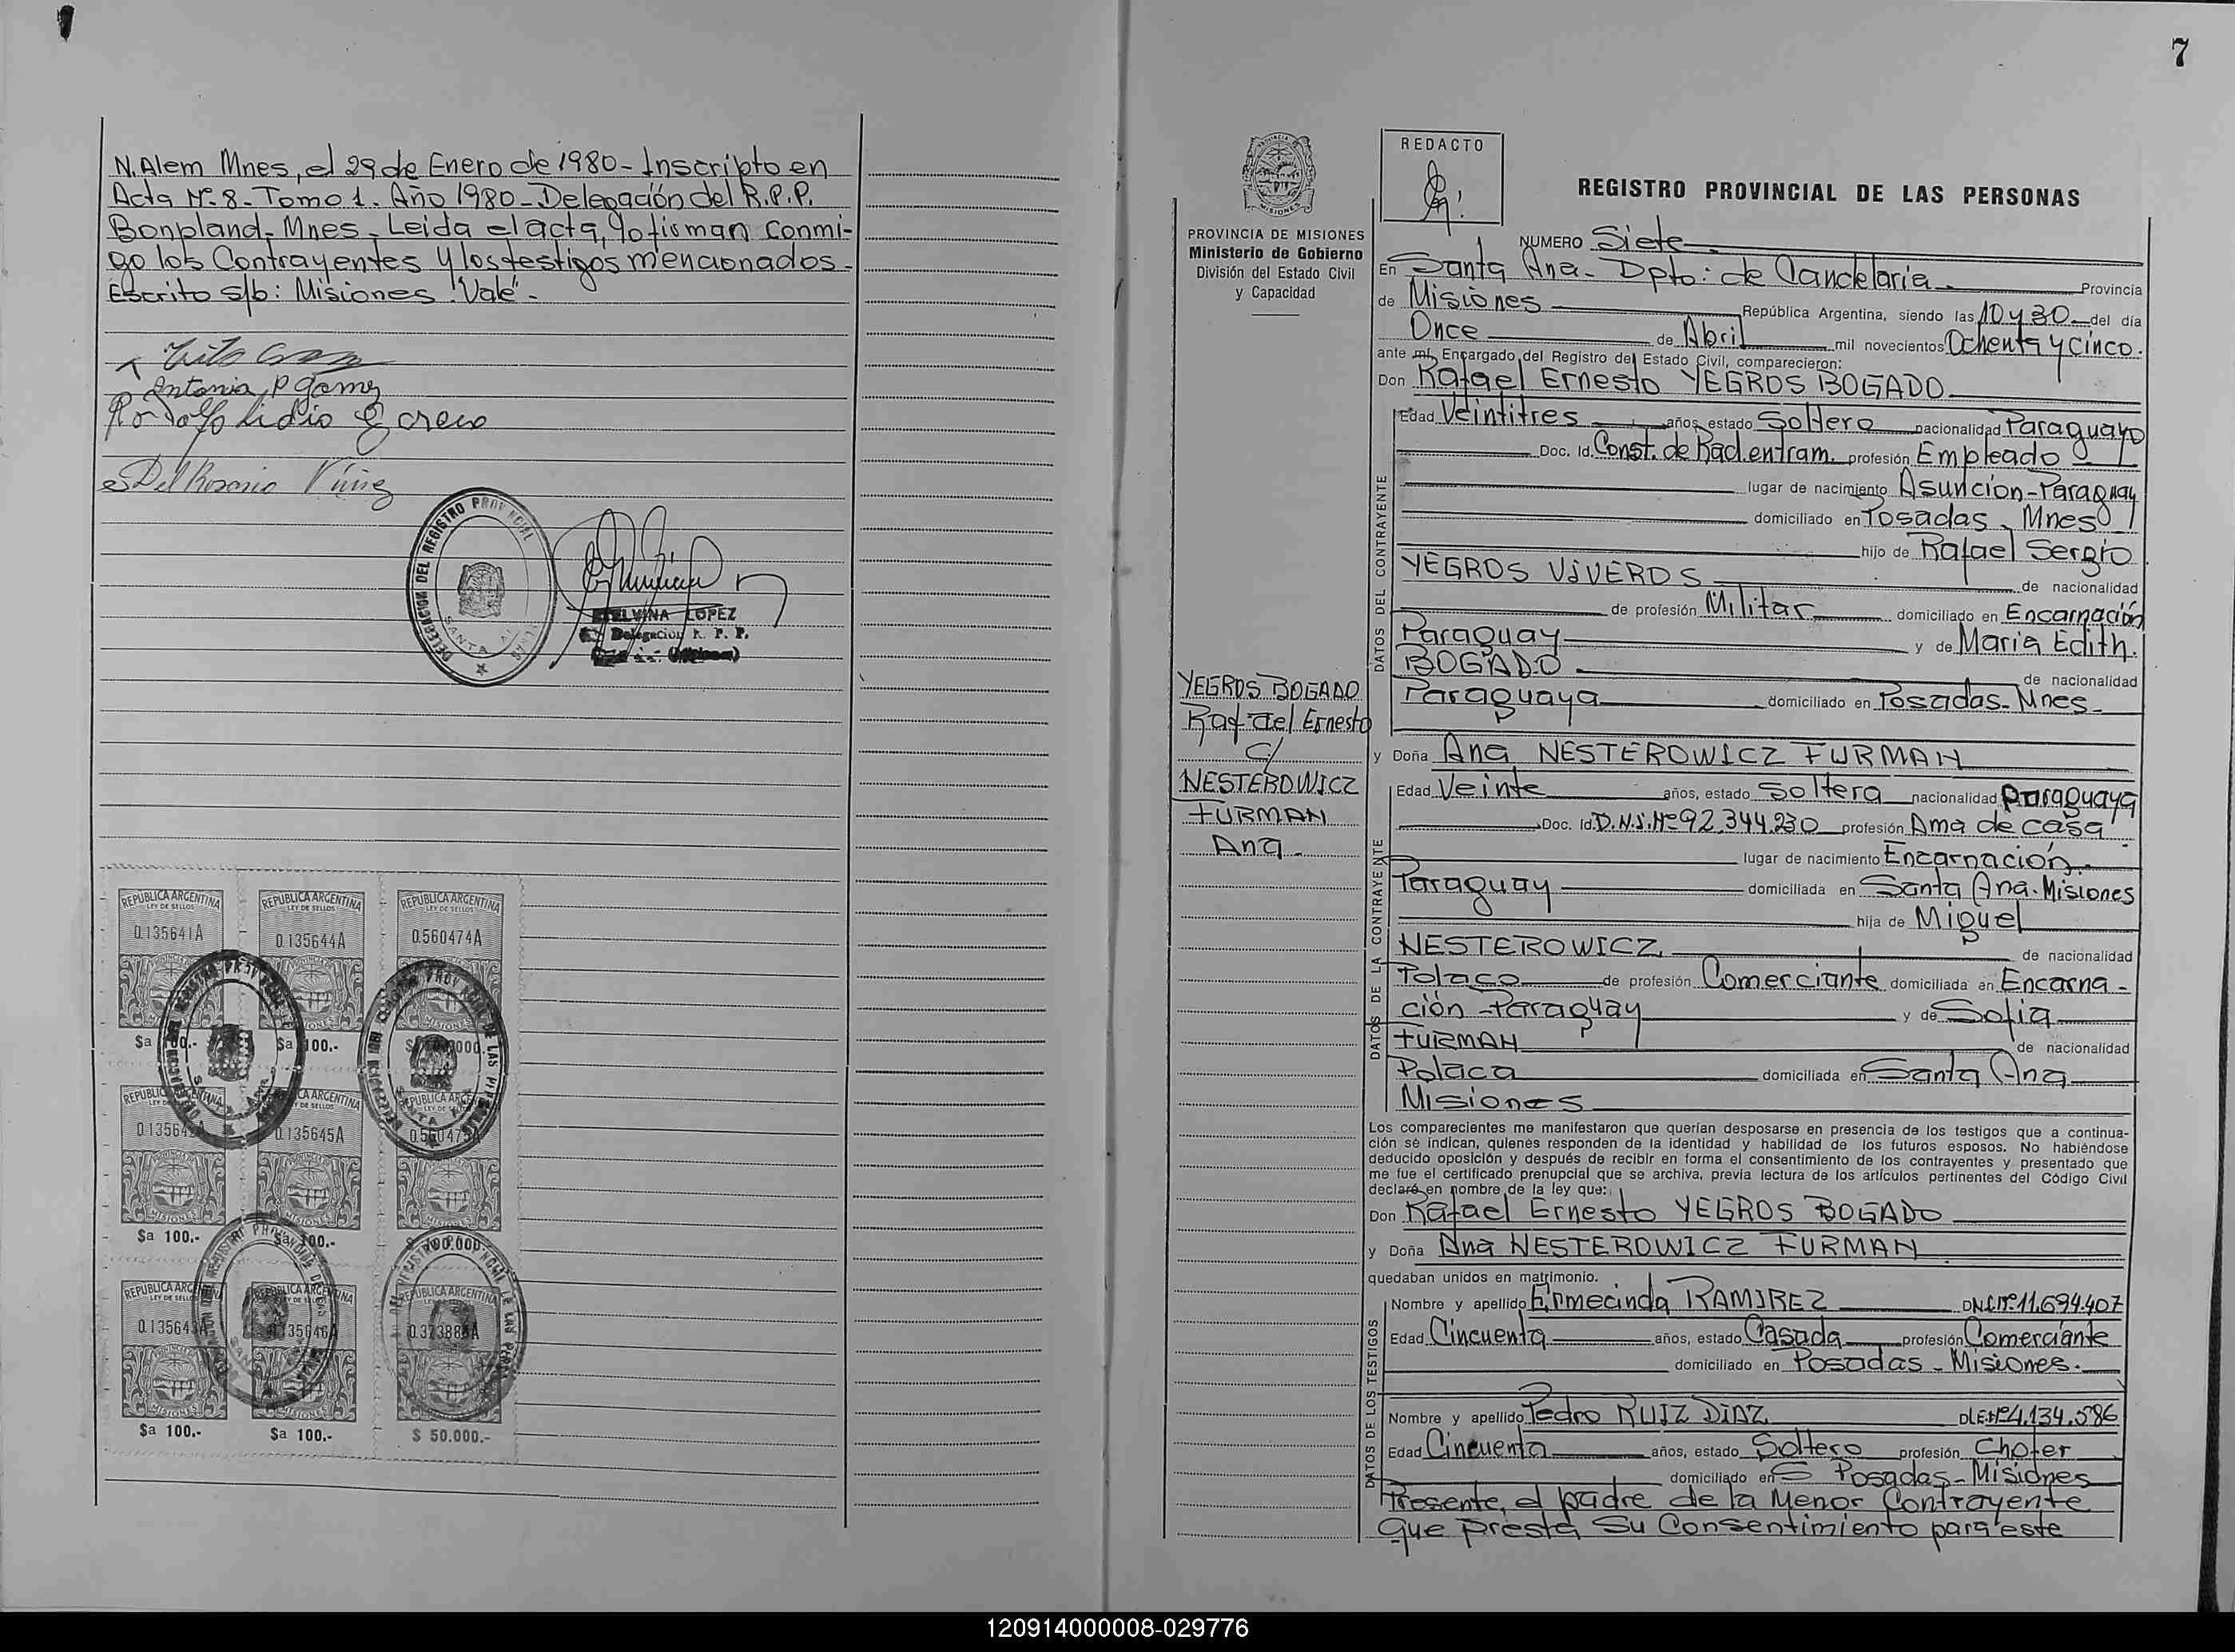 N. Alem Mnes, el 29 de Enero de 1980 - Inscripto en
Acta Nº 8 - Tomo 1. Año 1980 - Delegación del R.P.P.
Bonpland - Mnes - Leida el acta, la firman conmi-
go los Contrayentes y los testigos mencionados -
Escrito s/b: Misiones "Vale" -
Antonia P Gomez
Rodolfo Lidio
Del Rosario
DELEGACION DEL REGISTRO PROVINCIAL
SANTA ANA
ETELVINA LOPEZ
Delegacion R. P. P.
(Misiones)
REPUBLICA ARGENTINA REPUBLICA ARGENTINA REPUBLICA ARGENTINA
LEY DE SELLOS LEY DE SELLOS LEY DE SELLOS
0.135641A 0.135644A 0.560474A
MISIONES MISIONES MISIONES
$a 100.- $a 100.-
REPUBLICA ARGENTINA REPUBLICA ARGENTINA REPUBLICA ARGENTINA
0.135645A
MISIONES MISIONES MISIONES
$a 100.- $a 100.- 100.000
REPUBLICA ARGENTINA REPUBLICA ARGENTINA REPUBLICA ARGENTINA
LEY DE SELLOS
MISIONES MISIONES
$a 100.- $a 100.- $ 50.000.-
7
PROVINCIA DE MISIONES
Ministerio de Gobierno
División del Estado Civil
y Capacidad
YEGROS BOGADO
Rafael Ernesto
C/
NESTEROWICZ
FURMAN
Ana -
REDACTO
REGISTRO PROVINCIAL DE LAS PERSONAS
NUMERO Siete
En Santa Ana - Dpto: de Candelaria Provincia
de Misiones República Argentina, siendo las 10 y 30 del día
Once de Abril mil novecientos Ochenta y cinco.
ante mí, Encargado del Registro del Estado Civil, comparecieron:
Don Rafael Ernesto YEGROS BOGADO
DATOS DEL CONTRAYENTE
Edad Veintitres años, estado Soltero nacionalidad Paraguayo
Doc. Id. Const. de Rad. entram. profesión Empleado
lugar de nacimiento Asunción - Paraguay
domiciliado en Posadas - Mnes
hijo de Rafael Sergio
YEGROS VIVEROS de nacionalidad
de profesión Militar domiciliado en Encarnación
Paraguay y de Maria Edith.
BOGADO de nacionalidad
Paraguaya domiciliado en Posadas - Mnes -
y Doña Ana NESTEROWICZ FURMAN
DATOS DE LA CONTRAYENTE
Edad Veinte años, estado Soltera nacionalidad Paraguaya
Doc. Id. D.N.I. Nº 92.344.230 profesión Ama de casa
lugar de nacimiento Encarnación -
Paraguay domiciliada en Santa Ana - Misiones
hija de Miguel
NESTEROWICZ de nacionalidad
Polaco de profesión Comerciante domiciliada en Encarna-
ción - Paraguay y de Sofia
FURMAN de nacionalidad
Polaca domiciliada en Santa Ana
Misiones
Los comparecientes me manifestaron que querían desposarse en presencia de los testigos que a continua-
ción se indican, quienes responden de la identidad y habilidad de los futuros esposos. No habiéndose
deducido oposición y después de recibir en forma el consentimiento de los contrayentes y presentado que
me fue el certificado prenupcial que se archiva, previa lectura de los artículos pertinentes del Código Civil
declaré en nombre de la ley que:
Don Rafael Ernesto YEGROS BOGADO
y Doña Ana NESTEROWICZ FURMAN
quedaban unidos en matrimonio.
DATOS DE LOS TESTIGOS
Nombre y apellido Ermecinda RAMIREZ DNI Nº 11.694.407
Edad Cincuenta años, estado Casada profesión Comerciante
domiciliado en Posadas - Misiones.
Nombre y apellido Pedro RUIZ DIAZ DLE Nº 4.134.586
Edad Cincuenta años, estado Soltero profesión Chofer
domiciliado en Posadas - Misiones
Presente, el padre de la Menor Contrayente
que presta su Consentimiento para este
120914000008-029776